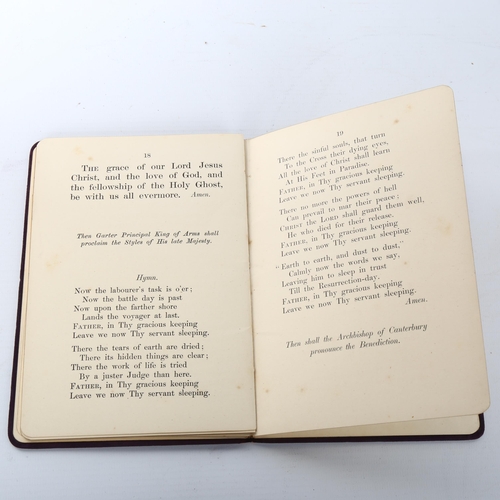 18
THE grace of our Lord Jesus
Christ, and the love of God, and
the fellowship of the Holy Ghost,
be with us all evermore. Amen.
Then Garter Principal King of Arms shall
proclaim the Styles of His late Majesty.
Hymn.
Now the labourer's task is o'er;
Now the battle day is past
Now upon the farther shore
Lands the voyager at last.
FATHER, in Thy gracious keeping
Leave we now Thy servant sleeping.
There the tears of earth are dried;
There its hidden things are clear;
There the work of life is tried
By a juster Judge than here.
FATHER, in Thy gracious keeping
Leave we now Thy servant sleeping.
19
There the sinful souls, that turn
To the Cross their dying eyes,
All the love of Christ shall learn
At His Feet in Paradise.
FATHER, in Thy gracious keeping
Leave we now Thy servant sleeping.
There no more the powers of hell
Can prevail to mar their peace;
CHRIST the LORD shall guard them well,
He who died for their release.
FATHER, in Thy gracious keeping
Leave we now Thy servant sleeping.
"Earth to earth, and dust to dust,"
Calmly now the words we say,
Leaving him to sleep in trust
Till the Resurrection-day.
FATHER, in Thy gracious keeping
Leave we now Thy servant sleeping.
Amen.
Then shall the Archbishop of Canterbury
pronounce the Benediction.